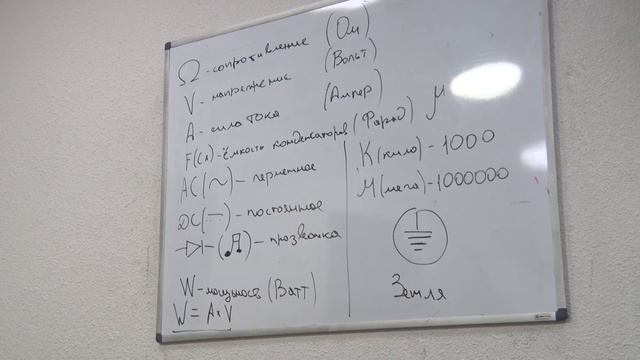 Ω - сопротивление (Ом)
V - напряжение (Вольт)
A - сила тока (Ампер)
F(Cx) - ёмкость конденсаторов (Фарад) μ
AC (~) - переменное
DC (⎓) - постоянное
(♫) - прозвонка
W - мощность (Ватт)
W = A × V
К (кило) - 1000
М (мега) - 1000000
Земля